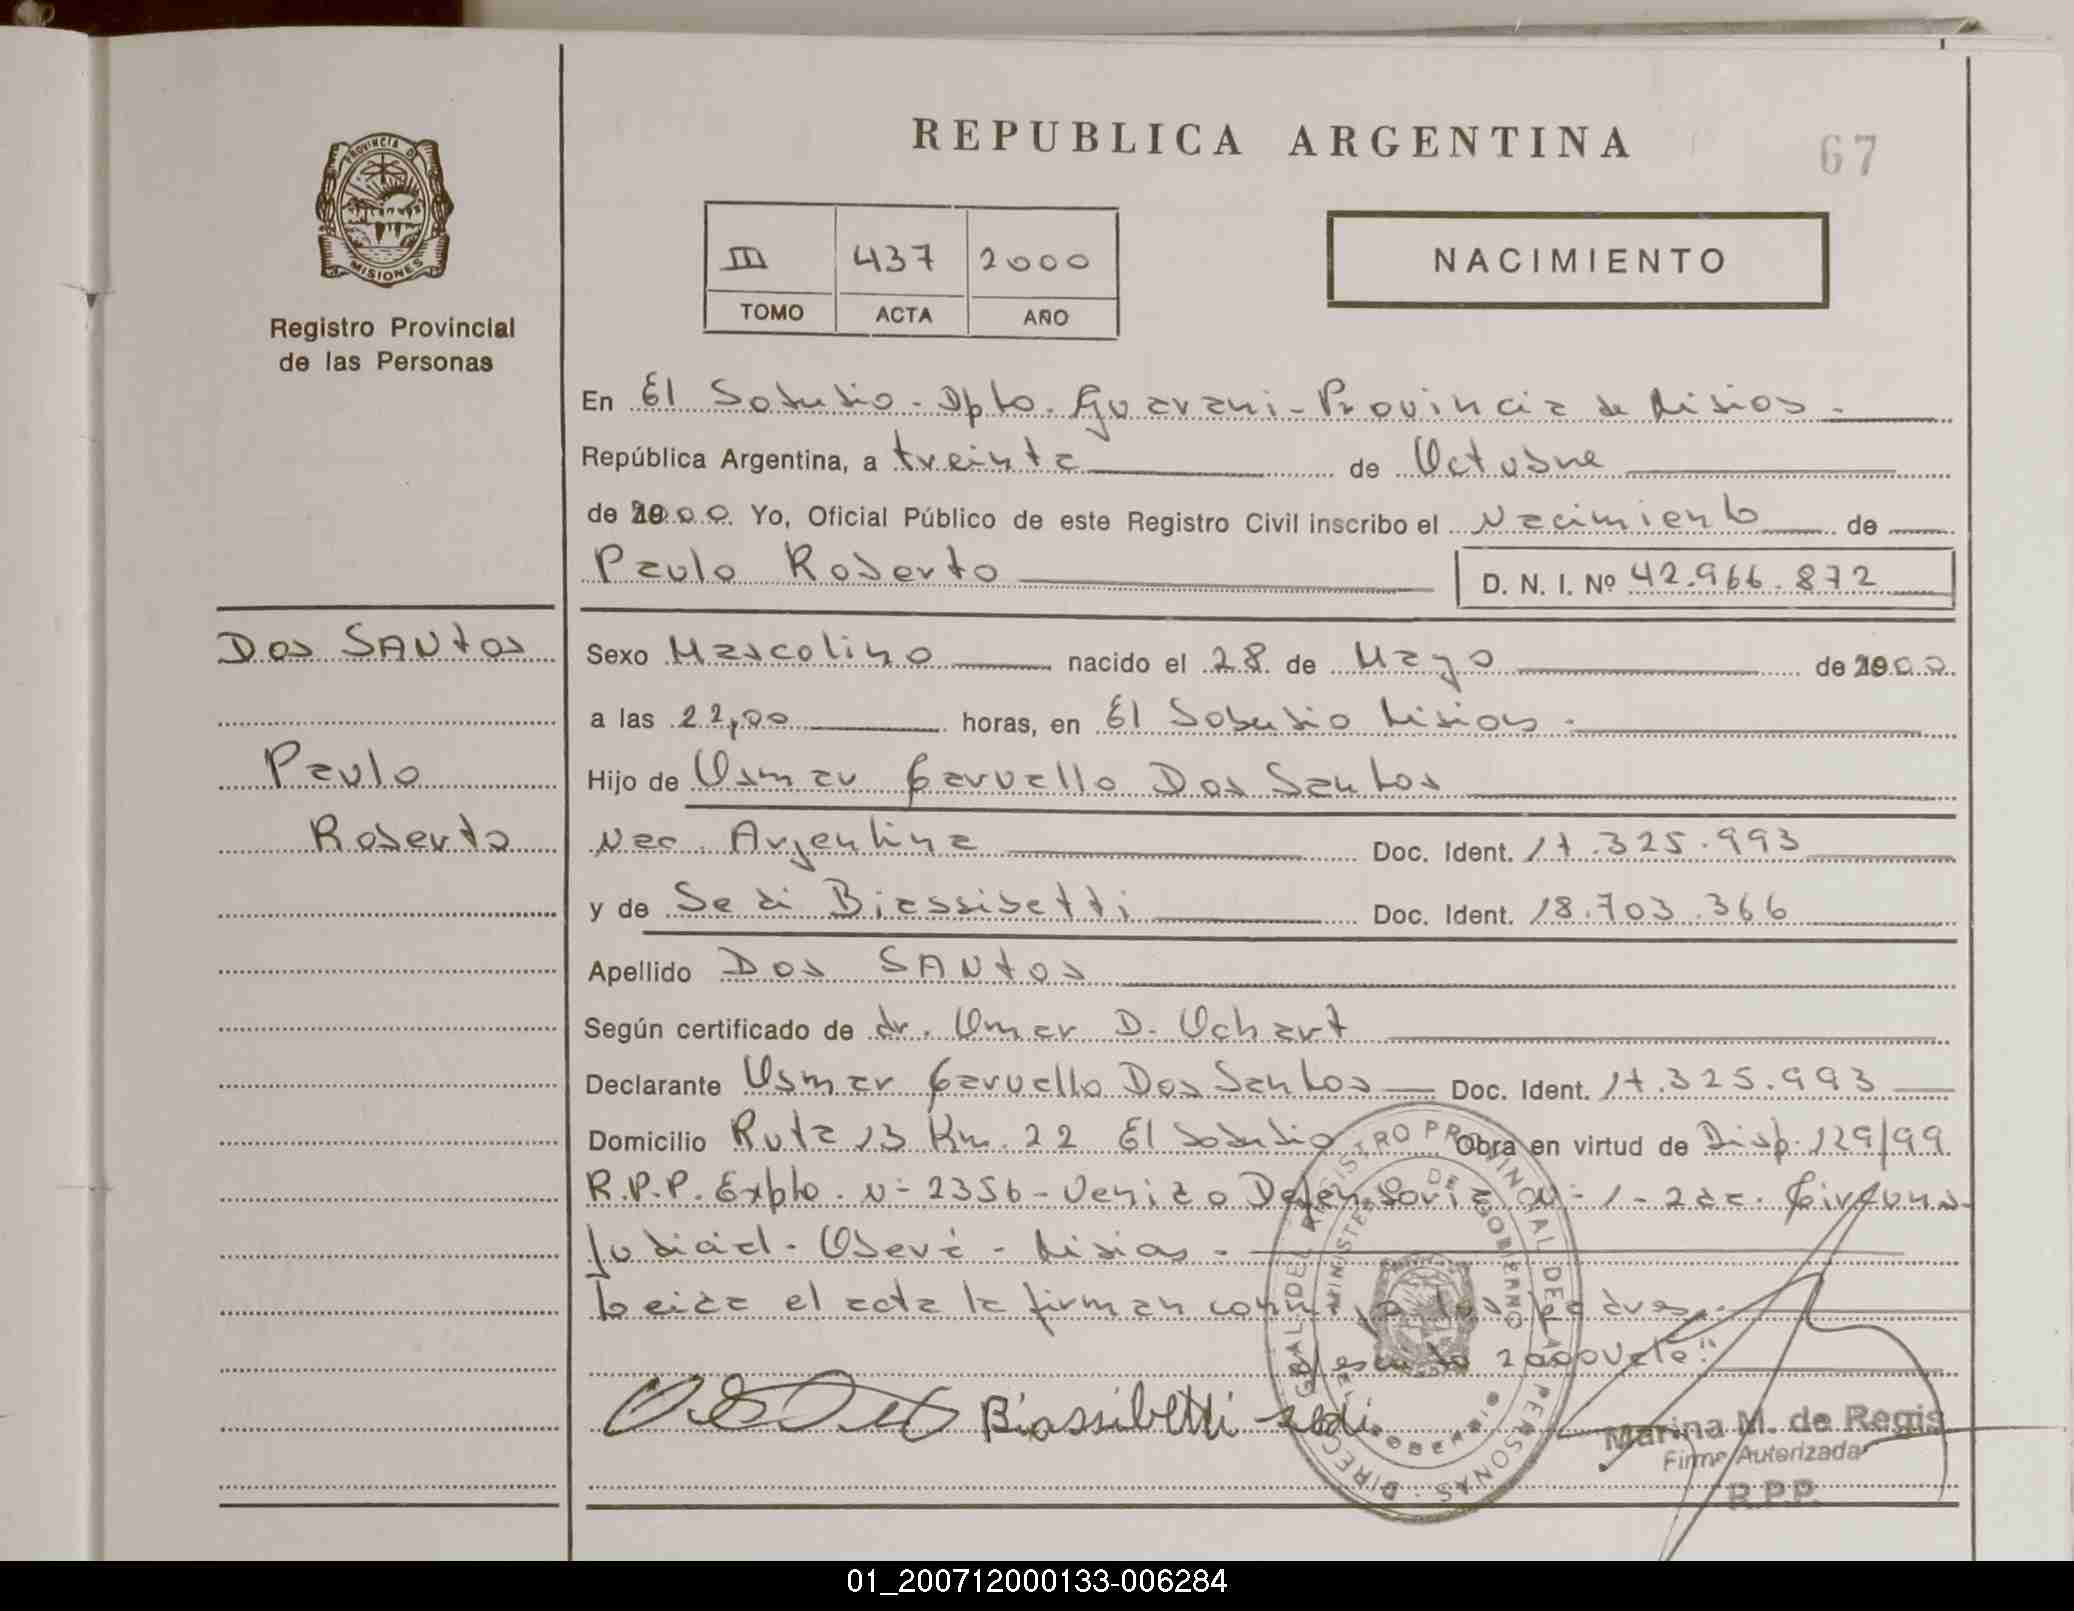 PROVINCIA DE
MISIONES
Registro Provincial
de las Personas
REPUBLICA ARGENTINA
67
III 437 2000
TOMO ACTA AÑO
NACIMIENTO
En El Soberbio - Dpto. Guarani - Provincia de Misios -
República Argentina, a treinta de Octubre
de 2000 Yo, Oficial Público de este Registro Civil inscribo el Nacimiento de
Paulo Roberto D. N. I. Nº 42.966.872
Dos SANtos
Paulo
Roberto
Sexo Mascolino nacido el 28 de Mayo de 2000
a las 22,00 horas, en El Soberbio Misios -
Hijo de Osmar Carvallo Dos Santos
Nac. Argentina Doc. Ident. 17.325.993
y de Sedi Biassibetti Doc. Ident. 18.703.366
Apellido Dos SANtos
Según certificado de dr. Omar D. Ochart
Declarante Osmar Carvallo Dos Santos Doc. Ident. 17.325.993
Domicilio Ruta 13 Km. 22 El Soberbio Obra en virtud de Disp. 129/99
R.P.P. Expte. N- 2356 - Venido Defensoria N- 1 - 2da. Circuns-
Judicial - Oberá - Misios -
Leida el acta la firman conmigo los padres -
2000 Vale:"
Biassibetti sedi
DIRECC. GRAL. DEL REGISTRO PROVINCIAL DE LAS PERSONAS
MINISTERIO DE GOBIERNO
EL SOBERBIO
Marina M. de Regis
Firma Autorizada
R.P.P.
01_200712000133-006284